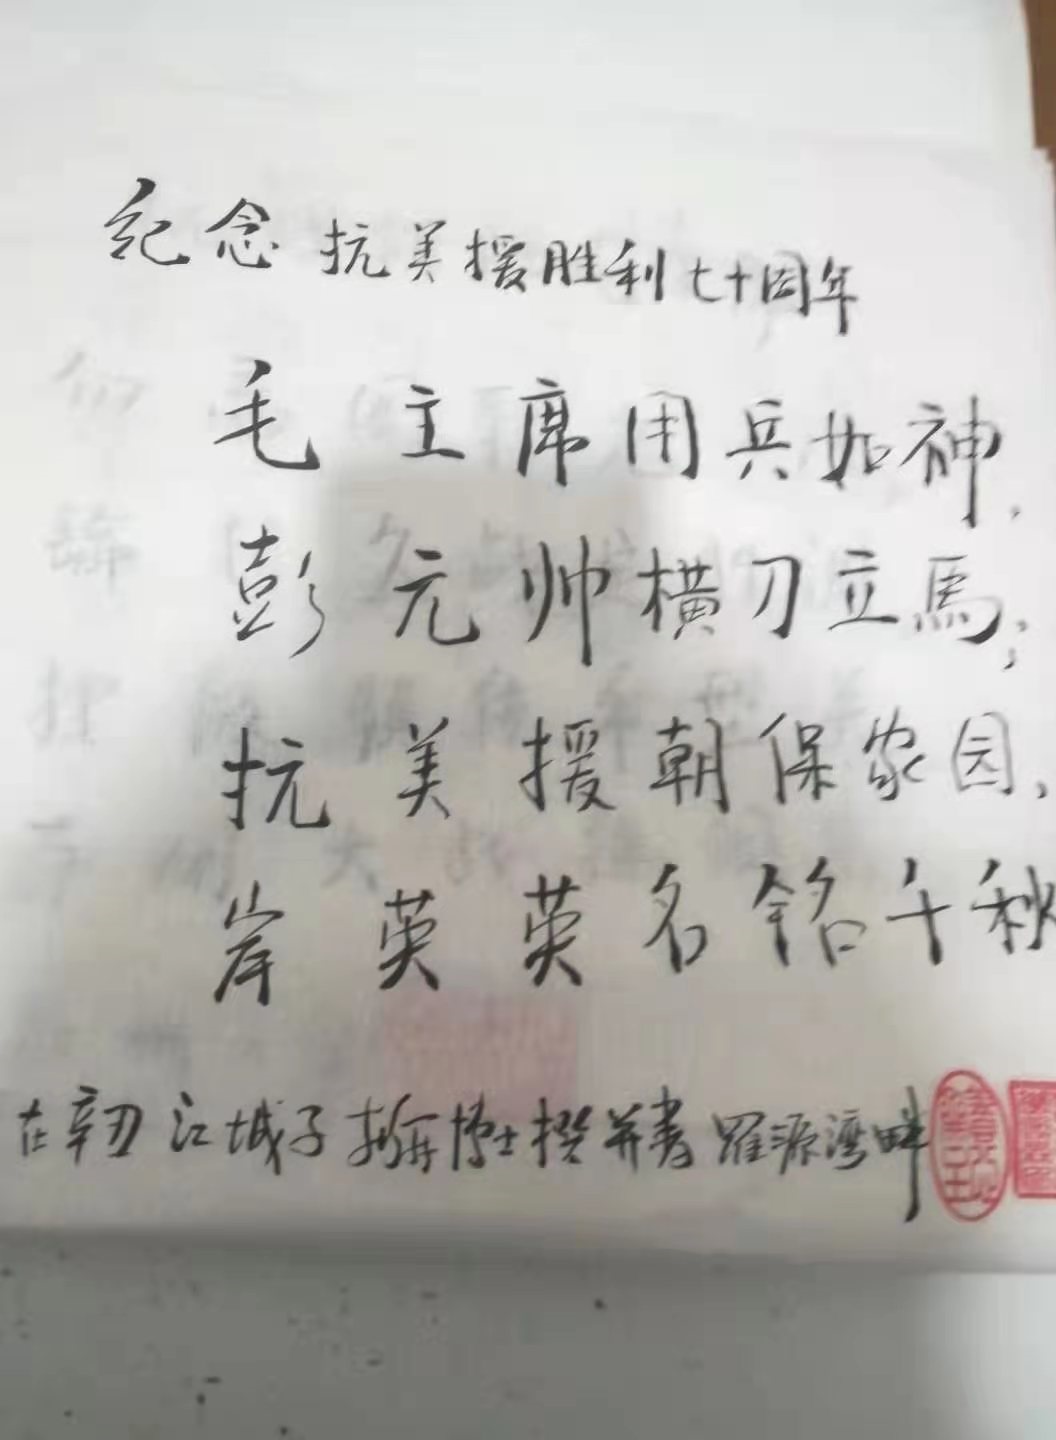 纪念抗美援胜利七十周年
毛主席用兵如神,
彭元帅横刀立馬;
抗美援朝保家园,
岸英英名铭千秋
在辛丑江城子搠博士撰并書羅源湾畔